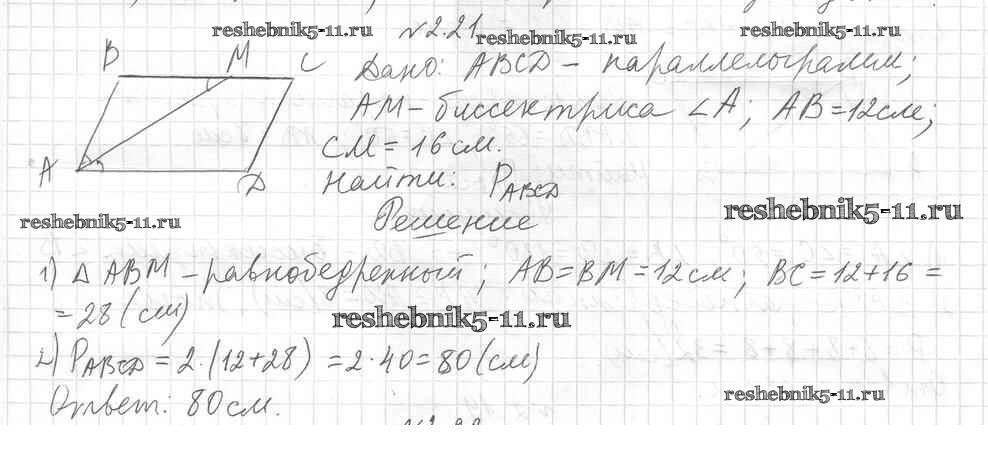 reshebnik5-11.ru
№2.21
reshebnik5-11.ru
reshebnik5-11.ru
B M C
Дано: ABCD – параллелограмм;
AM – биссектриса ∠A; AB = 12 см;
CM = 16 см.
A D
Найти: P_ABCD
Решение
reshebnik5-11.ru
reshebnik5-11.ru
1) Δ ABM – равнобедренный; AB = BM = 12 см; BC = 12 + 16 =
= 28 (см)
reshebnik5-11.ru
2) P_ABCD = 2·(12+28) = 2·40 = 80 (см)
reshebnik5-11.ru
Ответ: 80 см.